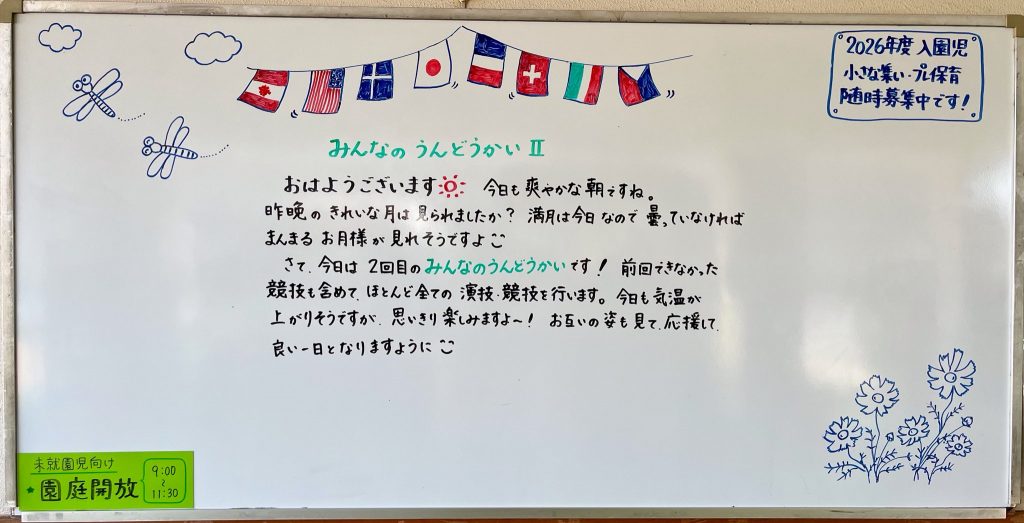 2026年度 入園児
小さな集い・プレ保育
随時募集中です!
みんなの うんどうかい Ⅱ
おはようございます 今日も爽やかな朝ですね。
昨晩の きれいな月は見られましたか? 満月は今日なので 曇っていなければ
まんまる お月様が 見れそうですよ
さて、今日は 2回目の みんなのうんどうかい です! 前回できなかった
競技も含めて、ほとんど全ての 演技・競技を行います。今日も気温が
上がりそうですが、思いきり楽しみますよ〜! お互いの姿も見て、応援して、
良い一日となりますように
未就園児向け
園庭開放
9:00
~
11:30